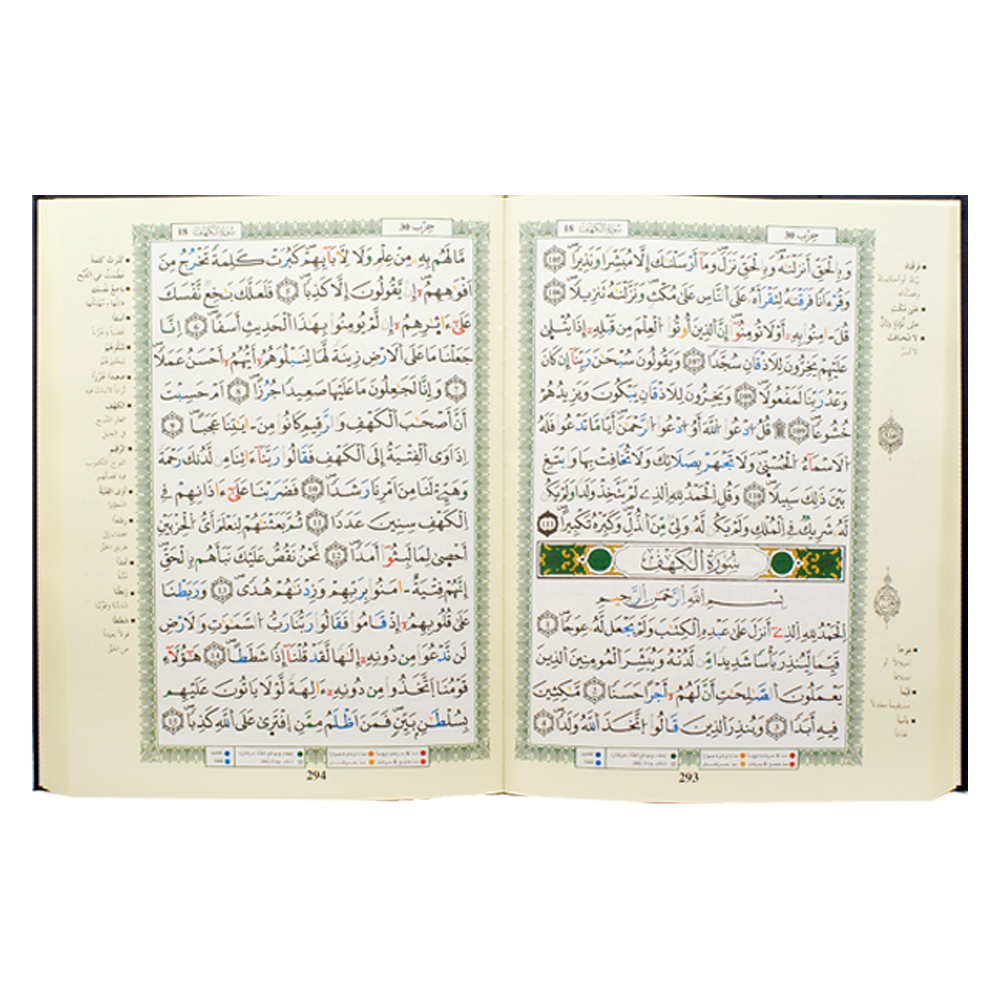 سورة الكهف 18
حزب 30
وَبِالْحَقِّ أَنزَلْنَٰهُ وَبِالْحَقِّ نَزَلَ وَمَآ أَرْسَلْنَٰكَ إِلَّا مُبَشِّرًا وَنَذِيرًا 105
وَقُرْءَانًا فَرَقْنَٰهُ لِتَقْرَأَهُۥ عَلَى النَّاسِ عَلَىٰ مُكْثٍ وَنَزَّلْنَٰهُ تَنزِيلًا 106
قُلَ ـامِنُوا بِهِۦٓ أَوْ لَا تُومِنُوٓا إِنَّ الَّذِينَ أُوتُوا الْعِلْمَ مِن قَبْلِهِۦٓ إِذَا يُتْلَىٰ
عَلَيْهِمْ يَخِرُّونَ لِلَاذْقَانِ سُجَّدًا 107 وَيَقُولُونَ سُبْحَٰنَ رَبِّنَآ إِن كَانَ
وَعْدُ رَبِّنَا لَمَفْعُولًا 108 وَيَخِرُّونَ لِلَاذْقَانِ يَبْكُونَ وَيَزِيدُهُمْ
خُشُوعًا 109 ۞ قُلُ ادْعُوا اللَّهَ أَوُ ادْعُوا الرَّحْمَٰنَ أَيًّا مَّا تَدْعُوا فَلَهُ
الَاسْمَآءُ الْحُسْنَىٰ وَلَا تَجْهَرْ بِصَلَاتِكَ وَلَا تُخَافِتْ بِهَا وَابْتَغِ
بَيْنَ ذَٰلِكَ سَبِيلًا 110 وَقُلِ الْحَمْدُ لِلهِ الَّذِي لَمْ يَتَّخِذْ وَلَدًا وَلَمْ يَكُن
لَّهُۥ شَرِيكٌ فِي الْمُلْكِ وَلَمْ يَكُن لَّهُۥ وَلِيٌّ مِّنَ الذُّلِّ وَكَبِّرْهُ تَكْبِيرًا 111
سُورَةُ الْكَهْفِ
بِسْمِ اللَّهِ الرَّحْمَٰنِ الرَّحِيمِ
الْحَمْدُ لِلهِ الَّذِيٓ أَنزَلَ عَلَىٰ عَبْدِهِ الْكِتَٰبَ وَلَمْ يَجْعَل لَّهُۥ عِوَجًا 1
قَيِّمًا لِّيُنذِرَ بَأْسًا شَدِيدًا مِّن لَّدُنْهُ وَيُبَشِّرَ الْمُومِنِينَ الَّذِينَ
يَعْمَلُونَ الصَّٰلِحَٰتِ أَنَّ لَهُمُۥٓ أَجْرًا حَسَنًا 2 مَّٰكِثِينَ
فِيهِ أَبَدًا 3 وَيُنذِرَ الَّذِينَ قَالُوا اتَّخَذَ اللَّهُ وَلَدًا 4
293
سورة الكهف 18
حزب 30
مَّا لَهُم بِهِۦ مِنْ عِلْمٍ وَلَا لِأَبَآئِهِمْ كَبُرَتْ كَلِمَةً تَخْرُجُ مِنَ
افْوَٰهِهِمُۥٓ إِن يَقُولُونَ إِلَّا كَذِبًا 5 فَلَعَلَّكَ بَٰخِعٌ نَّفْسَكَ
عَلَىٰٓ ءَاثَٰرِهِمُۥٓ إِن لَّمْ يُومِنُوا بِهَٰذَا الْحَدِيثِ أَسَفًا 6 اِنَّا
جَعَلْنَا مَا عَلَى الَارْضِ زِينَةً لَّهَا لِنَبْلُوَهُمُۥٓ أَيُّهُمُۥٓ أَحْسَنُ عَمَلًا
7 وَإِنَّا لَجَٰعِلُونَ مَا عَلَيْهَا صَعِيدًا جُرُزًا 8 اَمْ حَسِبْتَ
أَنَّ أَصْحَٰبَ الْكَهْفِ وَالرَّقِيمِ كَانُوا مِنَ ـايَٰتِنَا عَجَبًا 9
اِذَ اَوَى الْفِتْيَةُ إِلَى الْكَهْفِ فَقَالُوا رَبَّنَآ ءَاتِنَا مِن لَّدُنكَ رَحْمَةً
وَهَيِّئْ لَنَا مِنَ امْرِنَا رَشَدًا 10 فَضَرَبْنَا عَلَىٰٓ ءَاذَانِهِمْ فِي
الْكَهْفِ سِنِينَ عَدَدًا 11 ثُمَّ بَعَثْنَٰهُمْ لِنَعْلَمَ أَيُّ الْحِزْبَيْنِ
أَحْصَىٰ لِمَا لَبِثُوٓا أَمَدًا 12 نَّحْنُ نَقُصُّ عَلَيْكَ نَبَأَهُم بِالْحَقِّ
إِنَّهُمْ فِتْيَةٌ ـامَنُوا بِرَبِّهِمْ وَزِدْنَٰهُمْ هُدًى 13 وَرَبَطْنَا
عَلَىٰ قُلُوبِهِمُۥٓ إِذْ قَامُوا فَقَالُوا رَبُّنَا رَبُّ السَّمَٰوَٰتِ وَالَارْضِ
لَن نَّدْعُوَا مِن دُونِهِۦٓ إِلَٰهًا لَّقَدْ قُلْنَآ إِذًا شَطَطًا 14 هَٰٓؤُلَآءِ
قَوْمُنَا اتَّخَذُوا مِن دُونِهِۦٓ ءَالِهَةً لَّوْلَا يَاتُونَ عَلَيْهِم
بِسُلْطَٰنٍۭ بَيِّنٍ فَمَنَ اَظْلَمُ مِمَّنِ افْتَرَىٰ عَلَى اللَّهِ كَذِبًا 15
294